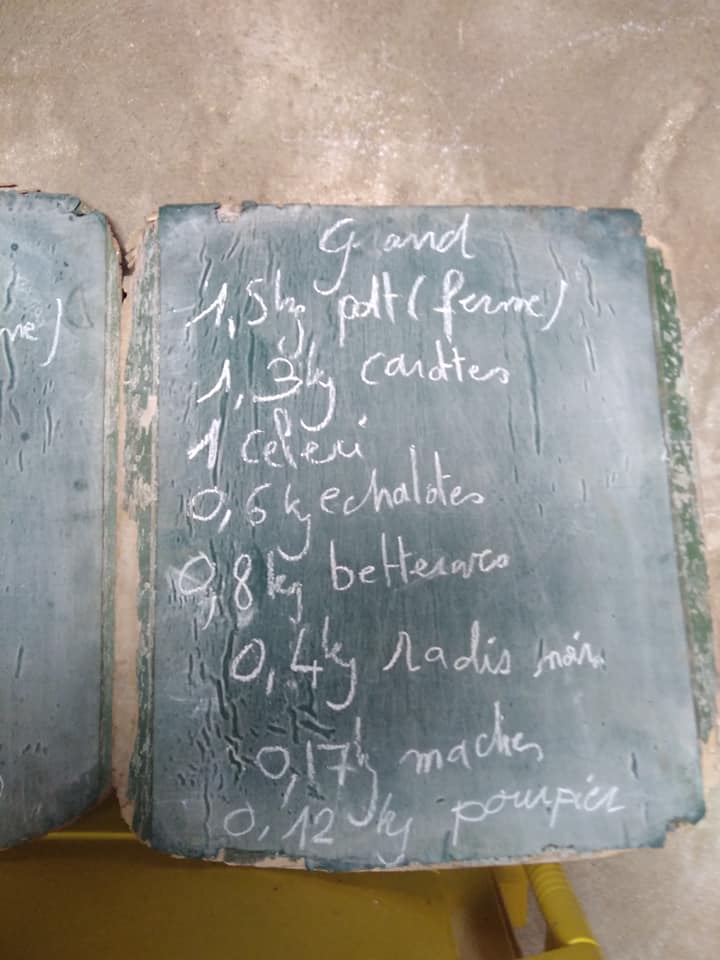 ne)
Grand
1,5kg pdt (ferme)
1,3kg carottes
1 celeri
0,6 kg echalotes
0,8kg betteraves
0,4kg radis noir
0,17kg maches
0,12 kg pourpier